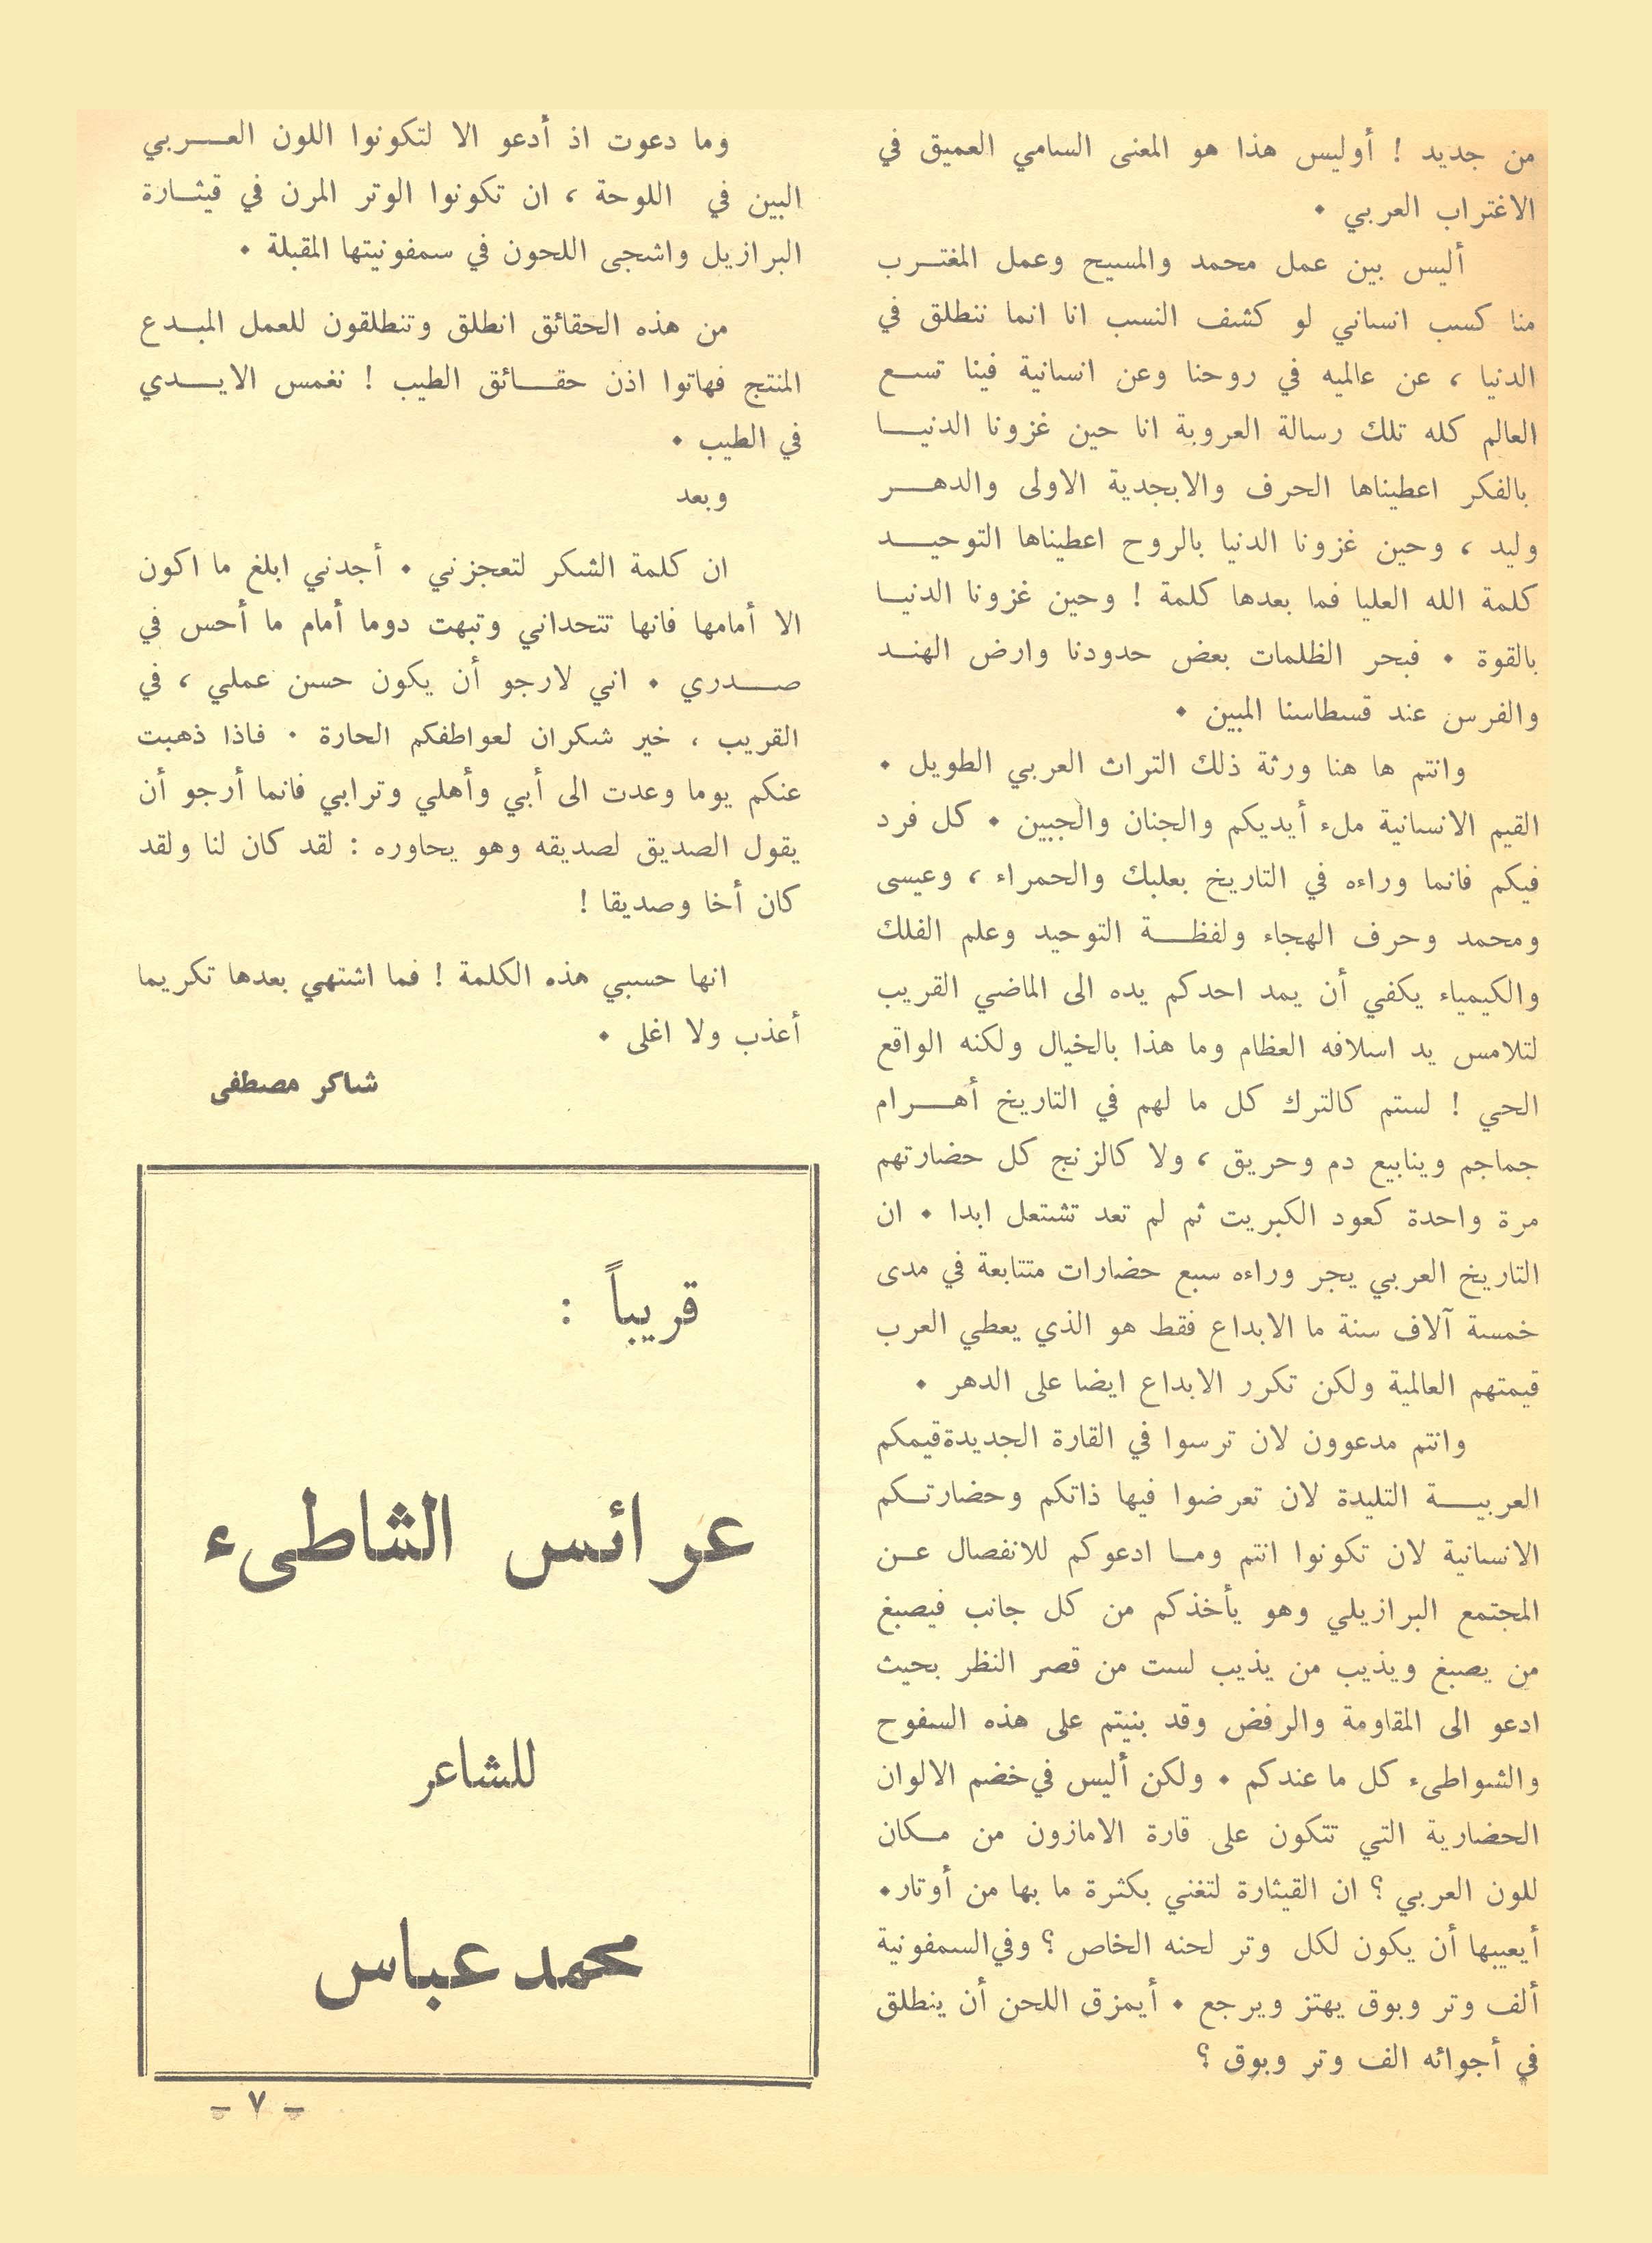 من جديد ! أوليس هذا هو المعنى السامي العميق في
الاغتراب العربي •
أليس بين عمل محمد والمسيح وعمل المغترب
منا كسب انساني لو كشف النسب انا انما ننطلق في
الدنيا ، عن عالميه في روحنا وعن انسانية فينا تسع
العالم كله تلك رسالة العروبة انا حين غزونا الدنيا
بالفكر اعطيناها الحرف والابجدية الاولى والدهر
وليد ، وحين غزونا الدنيا بالروح اعطيناها التوحيد
كلمة الله العليا فما بعدها كلمة ! وحين غزونا الدنيا
بالقوة • فبحر الظلمات بعض حدودنا وارض الهند
والفرس عند قسطاسنا المبين •
وانتم ها هنا ورثة ذلك التراث العربي الطويل •
القيم الانسانية ملء أيديكم والجنان والجبين • كل فرد
فيكم فانما وراءه في التاريخ بعلبك والحمراء ، وعيسى
ومحمد وحرف الهجاء ولفظة التوحيد وعلم الفلك
والكيمياء يكفي أن يمد احدكم يده الى الماضي القريب
لتلامس يد اسلافه العظام وما هذا بالخيال ولكنه الواقع
الحي ! لستم كالترك كل ما لهم في التاريخ أهرام
جماجم وينابيع دم وحريق ، ولا كالزنج كل حضارتهم
مرة واحدة كعود الكبريت ثم لم تعد تشتعل ابدا • ان
التاريخ العربي يجر وراءه سبع حضارات متتابعة في مدى
خمسة آلاف سنة ما الابداع فقط هو الذي يعطي العرب
قيمتهم العالمية ولكن تكرر الابداع ايضا على الدهر •
وانتم مدعوون لان ترسوا في القارة الجديدة قيمكم
العربية التليدة لان تعرضوا فيها ذاتكم وحضارتكم
الانسانية لان تكونوا انتم وما ادعوكم للانفصال عن
المجتمع البرازيلي وهو يأخذكم من كل جانب فيصبغ
من يصبغ ويذيب من يذيب لست من قصر النظر بحيث
ادعو الى المقاومة والرفض وقد بنيتم على هذه السفوح
والشواطىء كل ما عندكم • ولكن أليس في خضم الالوان
الحضارية التي تتكون على قارة الامازون من مكان
للون العربي ؟ ان القيثارة لتغني بكثرة ما بها من أوتار•
أيعيبها أن يكون لكل وتر لحنه الخاص ؟ وفي السمفونية
ألف وتر وبوق يهتز ويرجع • أيمزق اللحن أن ينطلق
في أجوائه الف وتر وبوق ؟
وما دعوت اذ أدعو الا لتكونوا اللون العربي
البين في اللوحة ، ان تكونوا الوتر المرن في قيثارة
البرازيل واشجى اللحون في سمفونيتها المقبلة •
من هذه الحقائق انطلق وتنطلقون للعمل المبدع
المنتج فهاتوا اذن حقائق الطيب ! نغمس الايدي
في الطيب •
وبعد
ان كلمة الشكر لتعجزني • أجدني ابلغ ما اكون
الا أمامها فانها تتحداني وتبهت دوما أمام ما أحس في
صدري • اني لارجو أن يكون حسن عملي ، في
القريب ، خير شكران لعواطفكم الحارة • فاذا ذهبت
عنكم يوما وعدت الى أبي وأهلي وترابي فانما أرجو أن
يقول الصديق لصديقه وهو يحاوره : لقد كان لنا ولقد
كان أخا وصديقا !
انها حسبي هذه الكلمة ! فما اشتهي بعدها تكريما
أعذب ولا اغلى •
شاكر مصطفى
قريباً :
عرائس الشاطىء
للشاعر
محمد عباس
– ٧ –